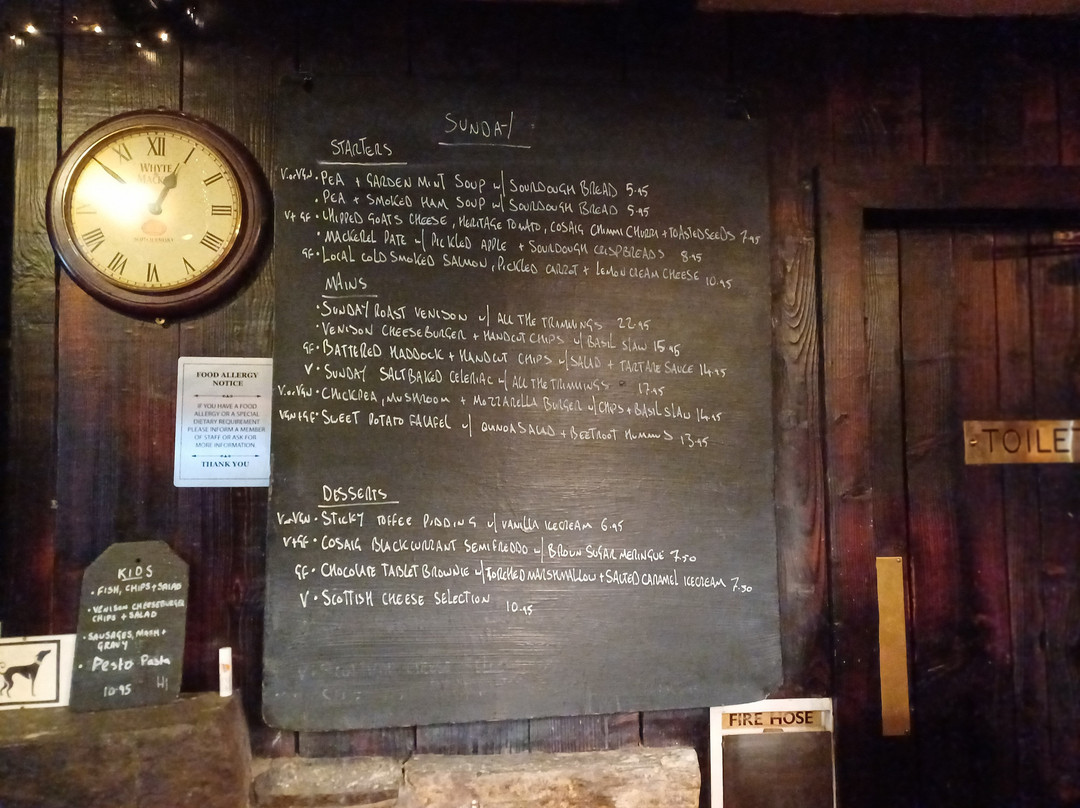 SUNDAY
STARTERS
V or VGN • PEA + GARDEN MINT SOUP w/ SOURDOUGH BREAD 5.95
• PEA + SMOKED HAM SOUP w/ SOURDOUGH BREAD 5.95
V+GF • WHIPPED GOATS CHEESE, HERITAGE TOMATO, COSAIG CHIMMI CHURRI + TOASTED SEEDS 7.95
• MACKEREL PATE w/ PICKLED APPLE + SOURDOUGH CRISPBREADS 8.95
GF • LOCAL COLD SMOKED SALMON, PICKLED CARROT + LEMON CREAM CHEESE 10.95
MAINS
• SUNDAY ROAST VENISON w/ ALL THE TRIMMINGS 22.95
• VENISON CHEESEBURGER + HANDCUT CHIPS w/ BASIL SLAW 15.95
GF • BATTERED HADDOCK + HANDCUT CHIPS w/ SALAD + TARTARE SAUCE 14.95
V • SUNDAY SALTBAKED CELERIAC w/ ALL THE TRIMMINGS 17.95
V or VGN • CHICKPEA, MUSHROOM + MOZZARELLA BURGER w/ CHIPS + BASIL SLAW 14.95
VGN+GF • SWEET POTATO FALAFEL w/ QUINOA SALAD + BEETROOT HUMMUS 13.95
DESSERTS
V or VGN • STICKY TOFFEE PUDDING w/ VANILLA ICECREAM 6.95
V+GF • COSAIG BLACKCURRANT SEMIFREDDO w/ BROWN SUGAR MERINGUE 7.50
GF • CHOCOLATE TABLET BROWNIE w/ TORCHED MARSHMALLOW + SALTED CARAMEL ICECREAM 7.50
V • SCOTTISH CHEESE SELECTION 10.95
XII
I
II
III
IIII
V
VI
VII
VIII
XI
WHYTE
MACKAY
SCOTCH WHISKY
FOOD ALLERGY
NOTICE
IF YOU HAVE A FOOD
ALLERGY OR A SPECIAL
DIETARY REQUIREMENT
PLEASE INFORM A MEMBER
OF STAFF OR ASK FOR
MORE INFORMATION
THANK YOU
KIDS
• FISH, CHIPS + SALAD
• VENISON CHEESEBURGER
CHIPS + SALAD
• SAUSAGES, MASH +
GRAVY
• Pesto Pasta
10.95
TOILE
FIRE HOSE